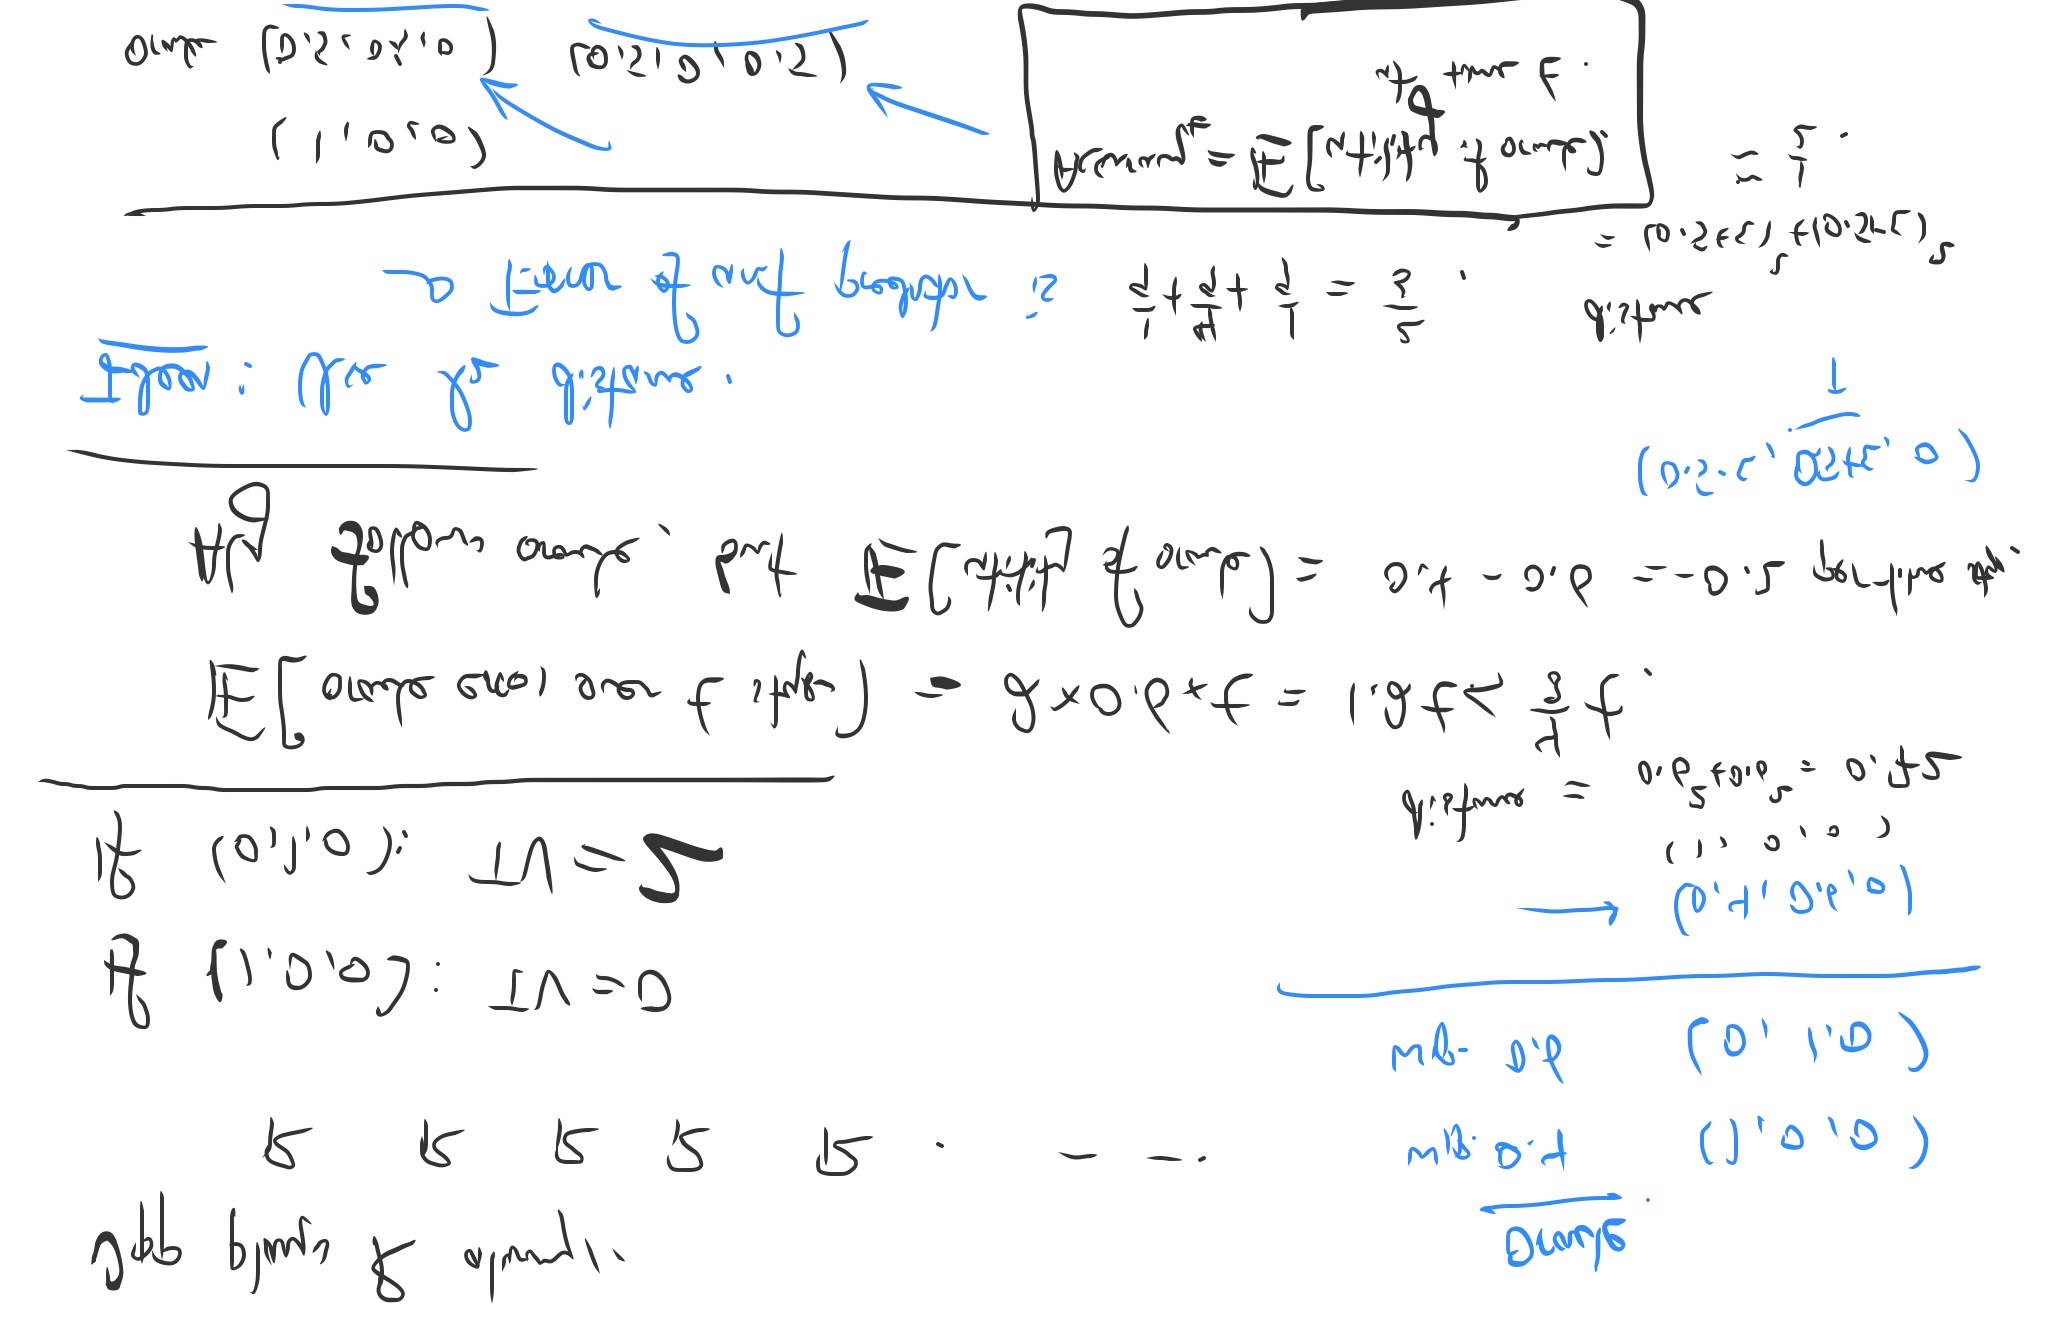 Opp plays R always.
R R R R R . - - -
Oracle
w.p. 0.4 (1, 0, 0)
wp- 0.6 (0, 1, 0)
→ (0.4, 0.6, 0)
(1, 0, 0)
distance = 0.6² + 0.6² = 0.72
If (1, 0, 0): TV = 0
If (0, 1, 0): TV = 2
E[oracle error over t steps] = 2 × 0.6 × t = 1.2t < 4/3 t.
Alg follows oracle, but E[utility of oracle] = 0.4 - 0.6 = -0.2 per-time step.
(0.5-ε, 0.5+ε, 0)
Idea: Use l₂ distance.
→ Error of unif predictor is 1/9 + 4/9 + 1/9 = 2/3.
distance
= (0.5+ε)² + (0.5+ε)²
≈ 1/2.
(1, 0, 0)
Oracle (0.5, 0.5, 0) (0.5, 0, 0.5)
Accuracy_t = E[utility of oracle].
at time t.